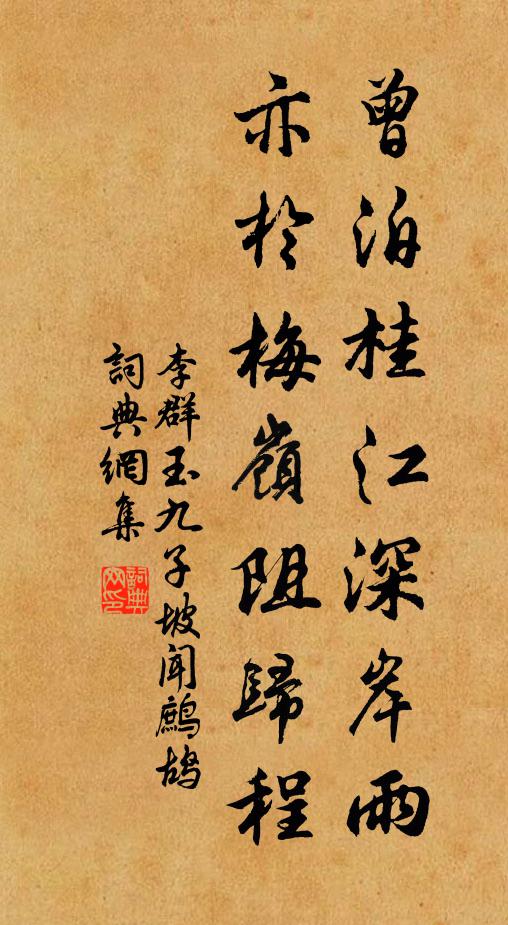 曾泊桂江深岸雨
亦於梅嶺阻歸程
李群玉九子坡聞鷓鴣
詞典網集
詞典网印